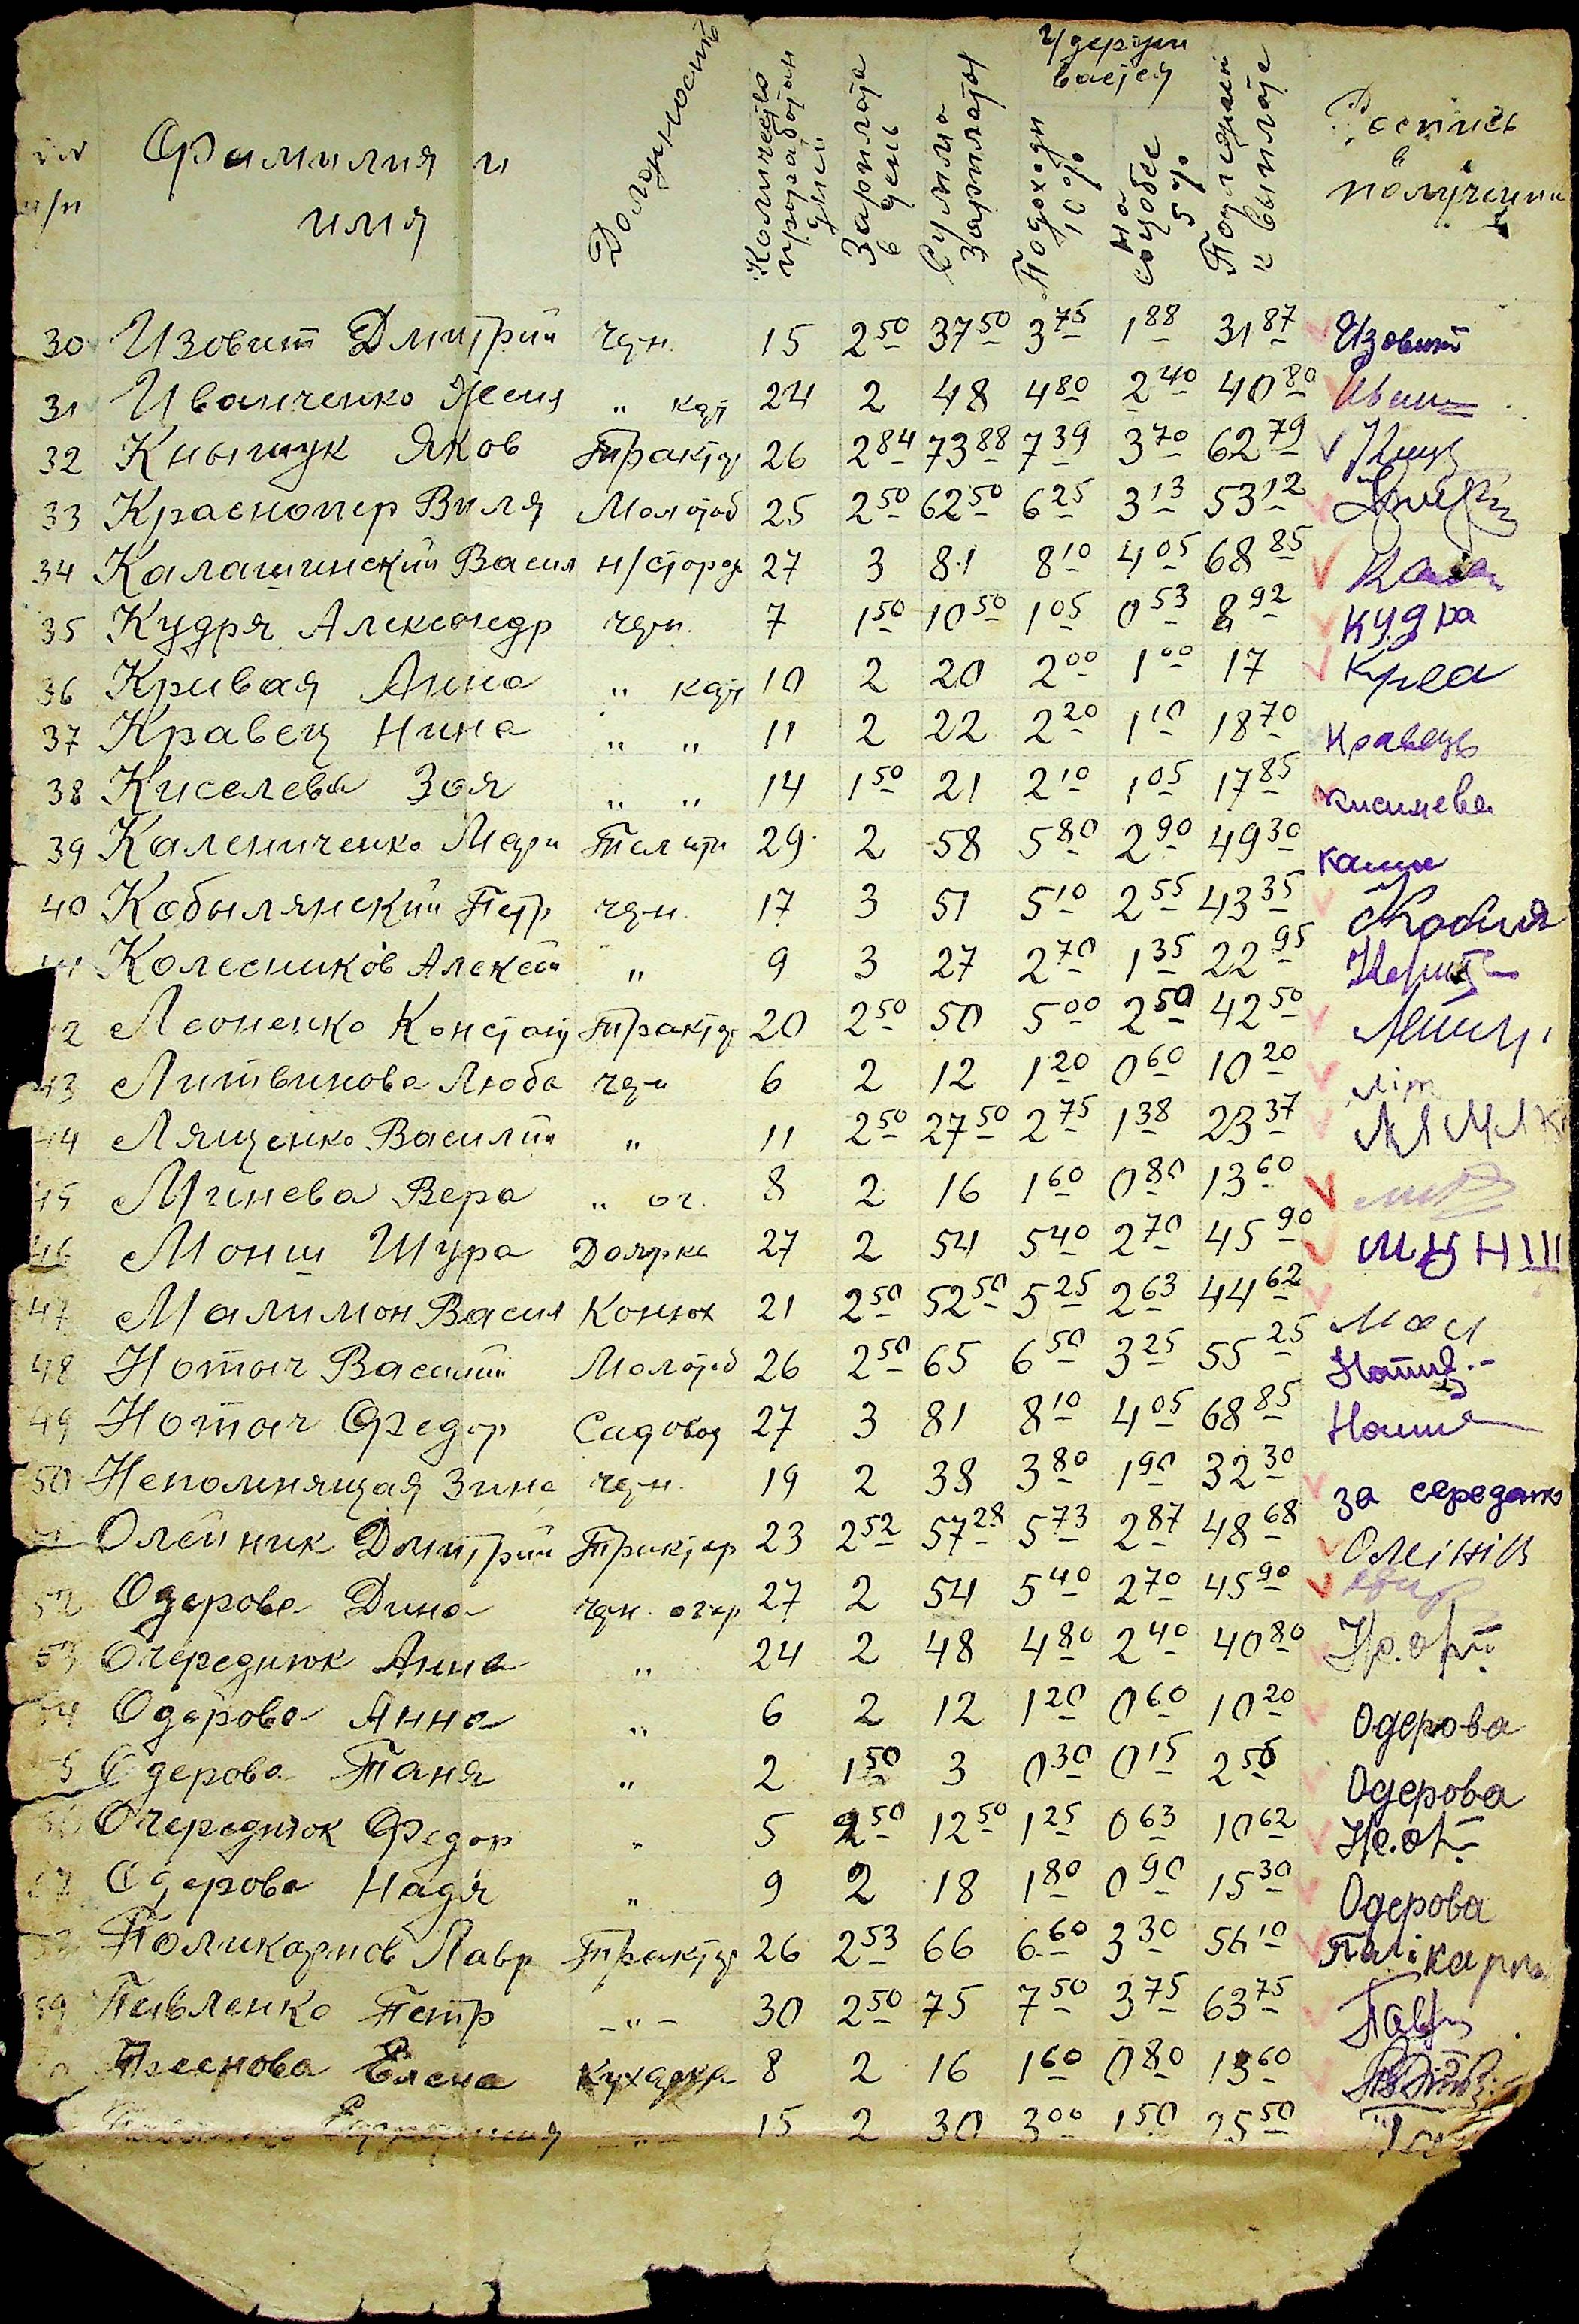 Фамилия и имя
Должность
Количество проработан дней
Зарплата в день
Сумма Зарплаты
Удержи вается
Подоходн 10%
на соцобес 5%
Подлежит к выплате
Роспись в получении
п/п
30 Изовит Дмитрий чрн. 15 2 50 37 50 3 75 1 88 31 87 Изовит
31 Иванченко Ксения " кат 24 2 48 4 80 2 40 40 80
32 Кнышук Яков Трактор 26 2 84 73 88 7 39 3 70 62 79
33 Краснопер Виля Молотоб 25 2 50 62 50 6 25 3 13 53 12
34 Калашинский Васил н/сторож 27 3 81 8 10 4 05 68 85
35 Кудря Александр чрн. 7 1 50 10 50 1 05 0 53 8 92 Кудра
36 Кривая Анна " кат 10 2 20 2 00 1 00 17 Креа
37 Кравец Нина " " 11 2 22 2 20 1 10 18 70 Кравець
38 Киселева Зоя " " 14 1 50 21 2 10 1 05 17 85 кисилева
39 Калениченко Мари Телятн 29 2 58 5 80 2 90 49 30
40 Кобылянский Петр чрн. 17 3 51 5 10 2 55 43 35
41 Колесников Алексей " 9 3 27 2 70 1 35 22 95
42 Леоненко Констант Трактор 20 2 50 50 5 00 2 50 42 50
43 Литвинова Люба чрн 6 2 12 1 20 0 60 10 20 літ
44 Лященко Василий " 11 2 50 27 50 2 75 1 38 23 37
45 Минева Вера " ог. 8 2 16 1 60 0 80 13 60
46 Монш Шура Доярка 27 2 54 5 40 2 70 45 90 МОНШ
47 Малимон Васил Конюх 21 2 50 52 50 5 25 2 63 44 62 Мал
48 Нотыч Василий Молотоб 26 2 50 65 6 50 3 25 55 25
49 Нотыч Федор Садовод 27 3 81 8 10 4 05 68 85
50 Непомнящая Зина чрн. 19 2 38 3 80 1 90 32 30 за середню
Олейник Дмитрий Трактор 23 2 52 57 28 5 73 2 87 48 68 Олейнік
52 Одерова Дина чрн. огор 27 2 54 5 40 2 70 45 90
53 Очереднюк Анна " 24 2 48 4 80 2 40 40 80
54 Одерова Анна " 6 2 12 1 20 0 60 10 20 Одерова
5 Одерова Таня " 2 1 50 3 0 30 0 15 2 55 Одерова
56 Очереднюк Федор " 5 2 50 12 50 1 25 0 63 10 62
57 Одерова Надя " 9 2 18 1 80 0 90 15 30 Одерова
58 Поликарпов Лавр Трактор 26 2 53 66 6 60 3 30 56 10 Полікарпо
59 Павленко Петр -"- 30 2 50 75 7 50 3 75 63 75
Елена Кухарка 8 2 16 1 60 0 80 13 60
-"- 15 2 30 3 00 1 50 25 50